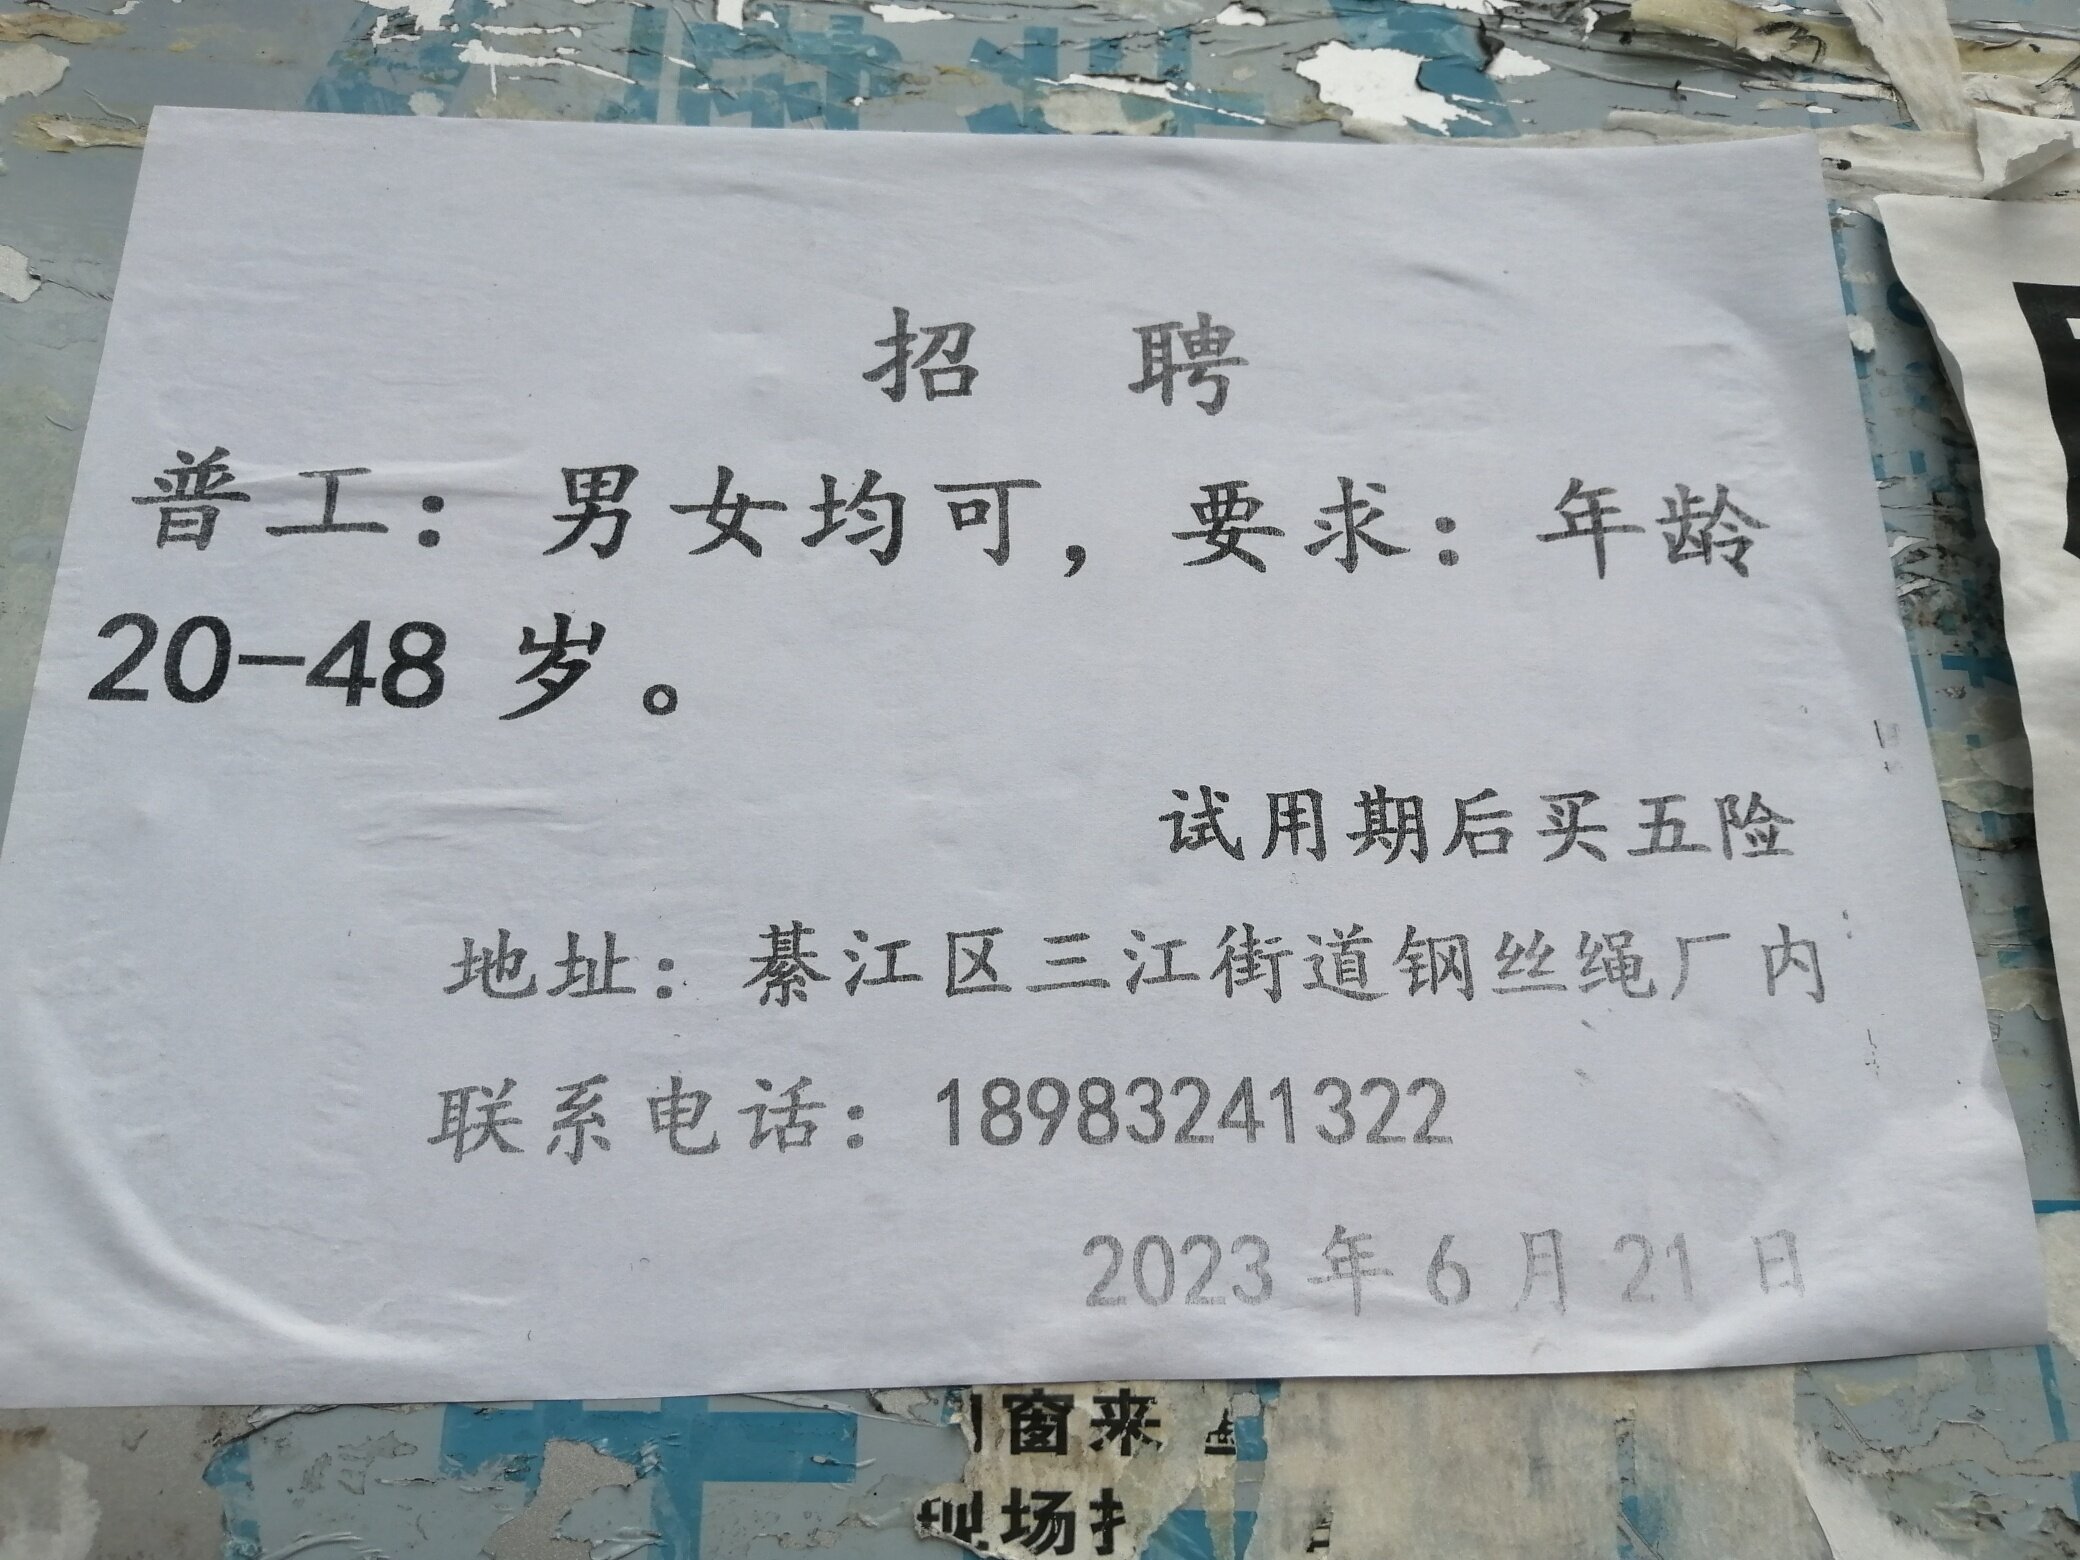 招 聘
普工：男女均可，要求：年龄
20-48 岁。
试用期后买五险
地址：綦江区三江街道钢丝绳厂内
联系电话：18983241322
2023 年 6 月 21 日
窗来
场